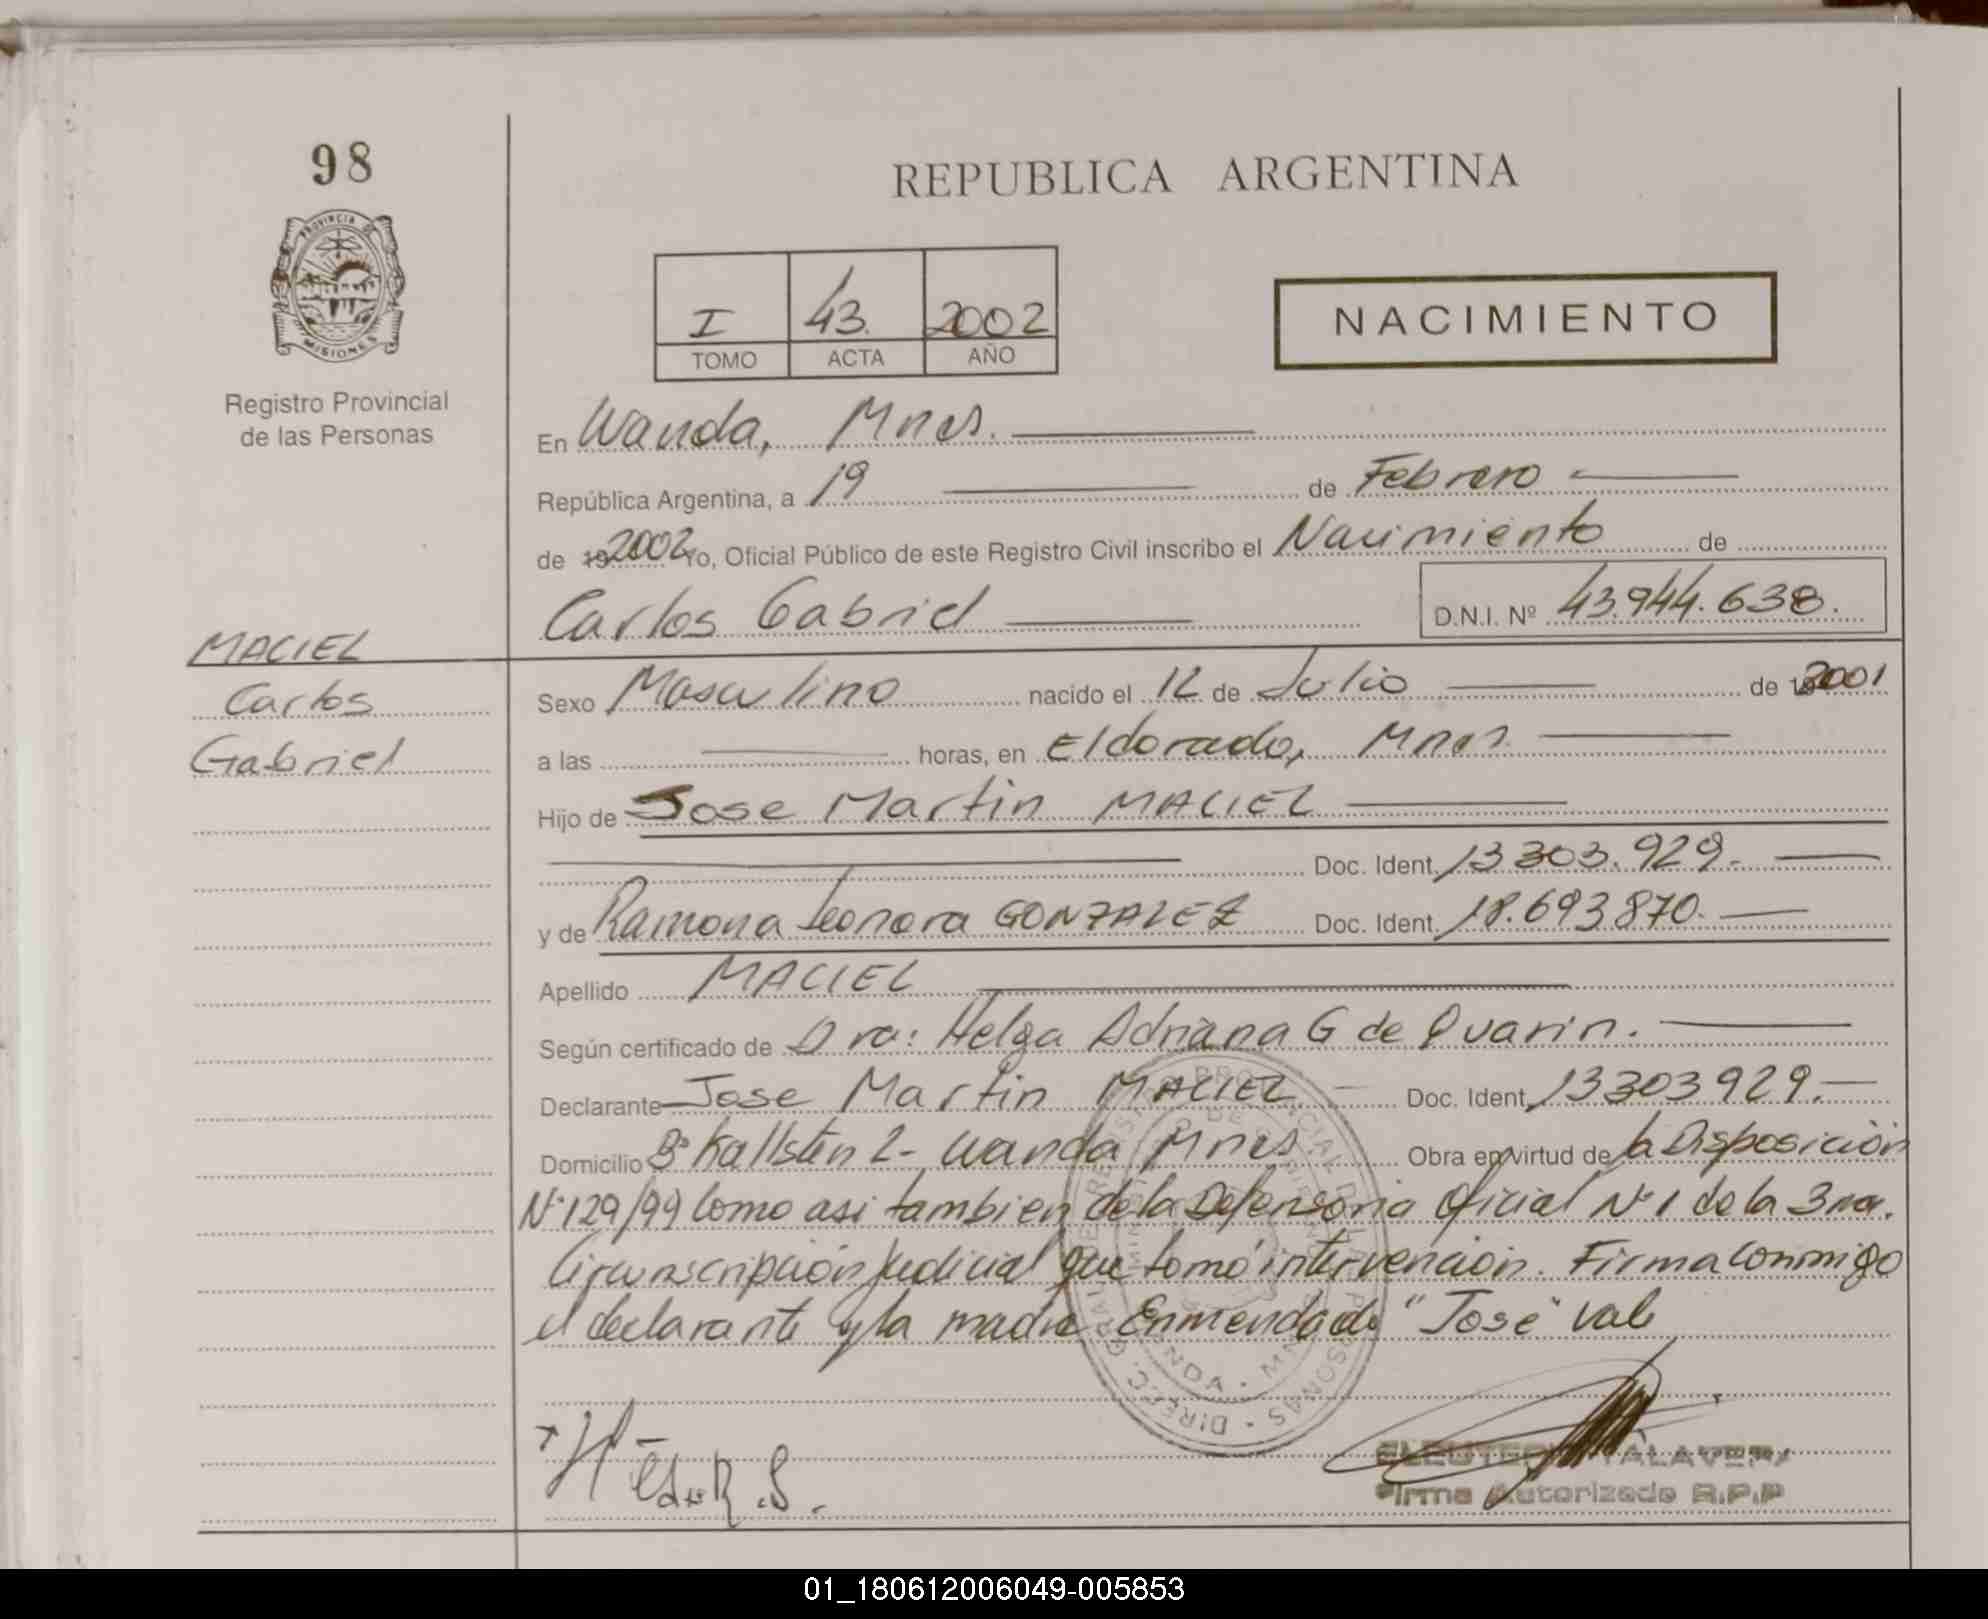 98
PROVINCIA DE
MISIONES
Registro Provincial
de las Personas
REPUBLICA ARGENTINA
I 43. 2002
TOMO ACTA AÑO
NACIMIENTO
En Wanda, Mnes.
República Argentina, a 19 de Febrero
de 19 2002 Yo, Oficial Público de este Registro Civil inscribo el Nacimiento de
Carlos Gabriel D.N.I. Nº 43.944.638.
MACIEL
Carlos
Gabriel
Sexo Masculino nacido el 12 de Julio de 19 2001
a las horas, en Eldorado, Mnes
Hijo de Jose Martin MACIEL
Doc. Ident. 13303.929.
y de Ramona Leonora GONZALEZ Doc. Ident. 18.693.870.
Apellido MACIEL
Según certificado de Dra: Helga Adriana G de Quarin.
Declarante Jose Martin MACIEL Doc. Ident. 13303929.
Domicilio Bº Kallsten 2 - Wanda Mnes Obra en virtud de la Disposición
Nº 129/99 Como asi tambien de la Defensoria Oficial Nº 1 de la 3ra.
Circunscripción Judicial que tomó intervención. Firma Conmigo
el declarante y la madre Enmendado "José" Vale
ELEUTERIO TALAVERA
Firma Autorizada R.P.P
01_180612006049-005853